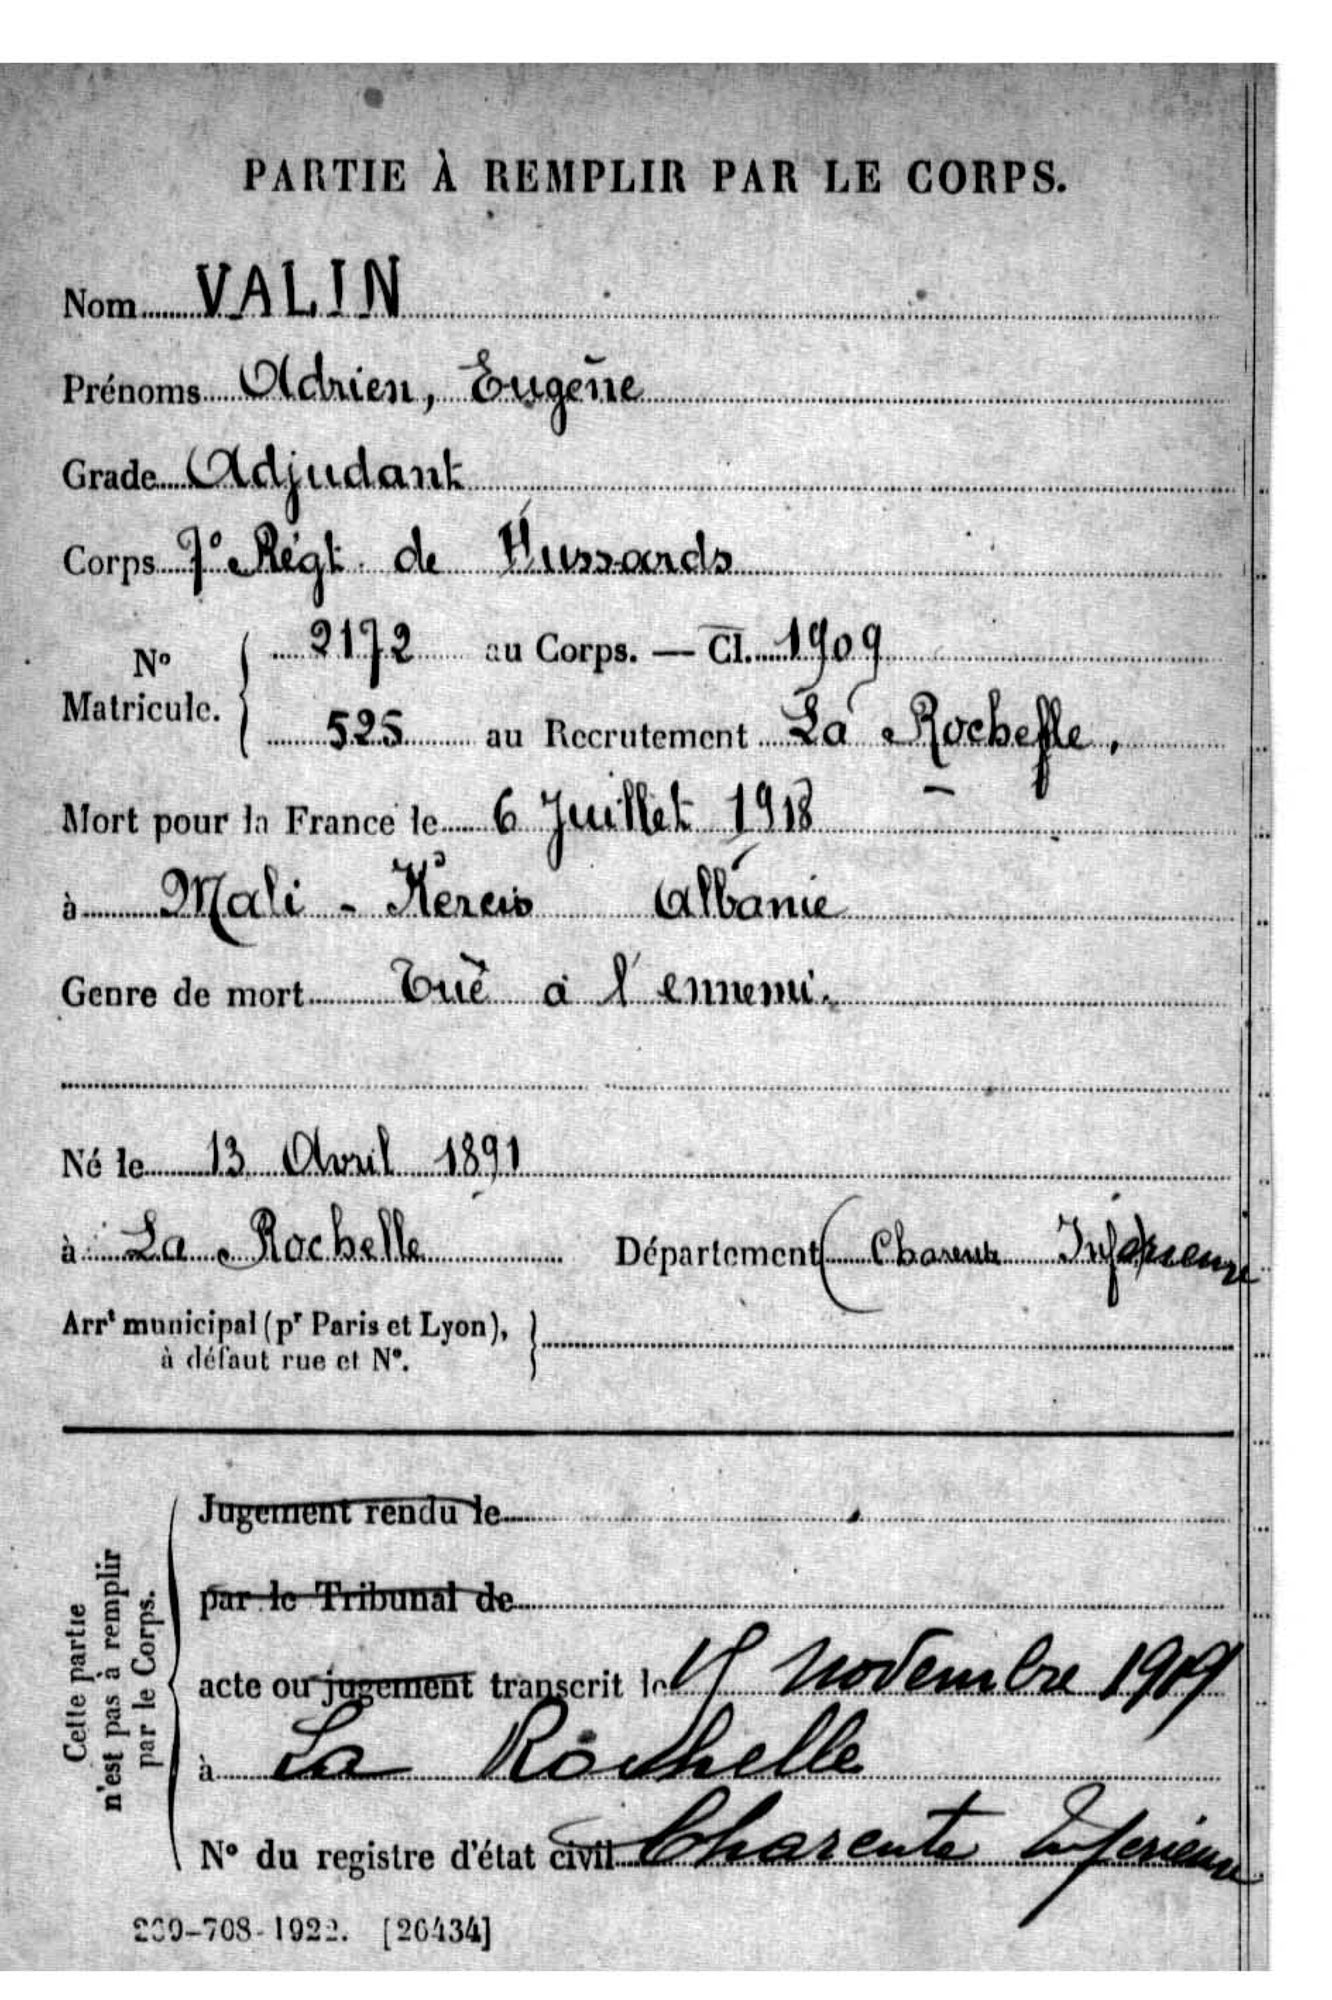 PARTIE À REMPLIR PAR LE CORPS.
Nom VALIN
Prénoms Adrien, Eugène
Grade Adjudant
Corps 7° Régt de Hussards
N° Matricule. 2172 au Corps. — Cl. 1909
525 au Recrutement La Rochelle.
Mort pour la France le 6 Juillet 1918
à Mali - Albanie
Genre de mort Tué à l'ennemi.
Né le 13 Avril 1891
à La Rochelle Département (Charente Inférieure
Arrt municipal (pr Paris et Lyon),
à défaut rue et N°.
Cette partie
n'est pas à remplir
par le Corps.
Jugement rendu le
par le Tribunal de
acte ou jugement transcrit le novembre
à La Rochelle
N° du registre d'état civil Charente Inférieure
-708-1922. [26434]